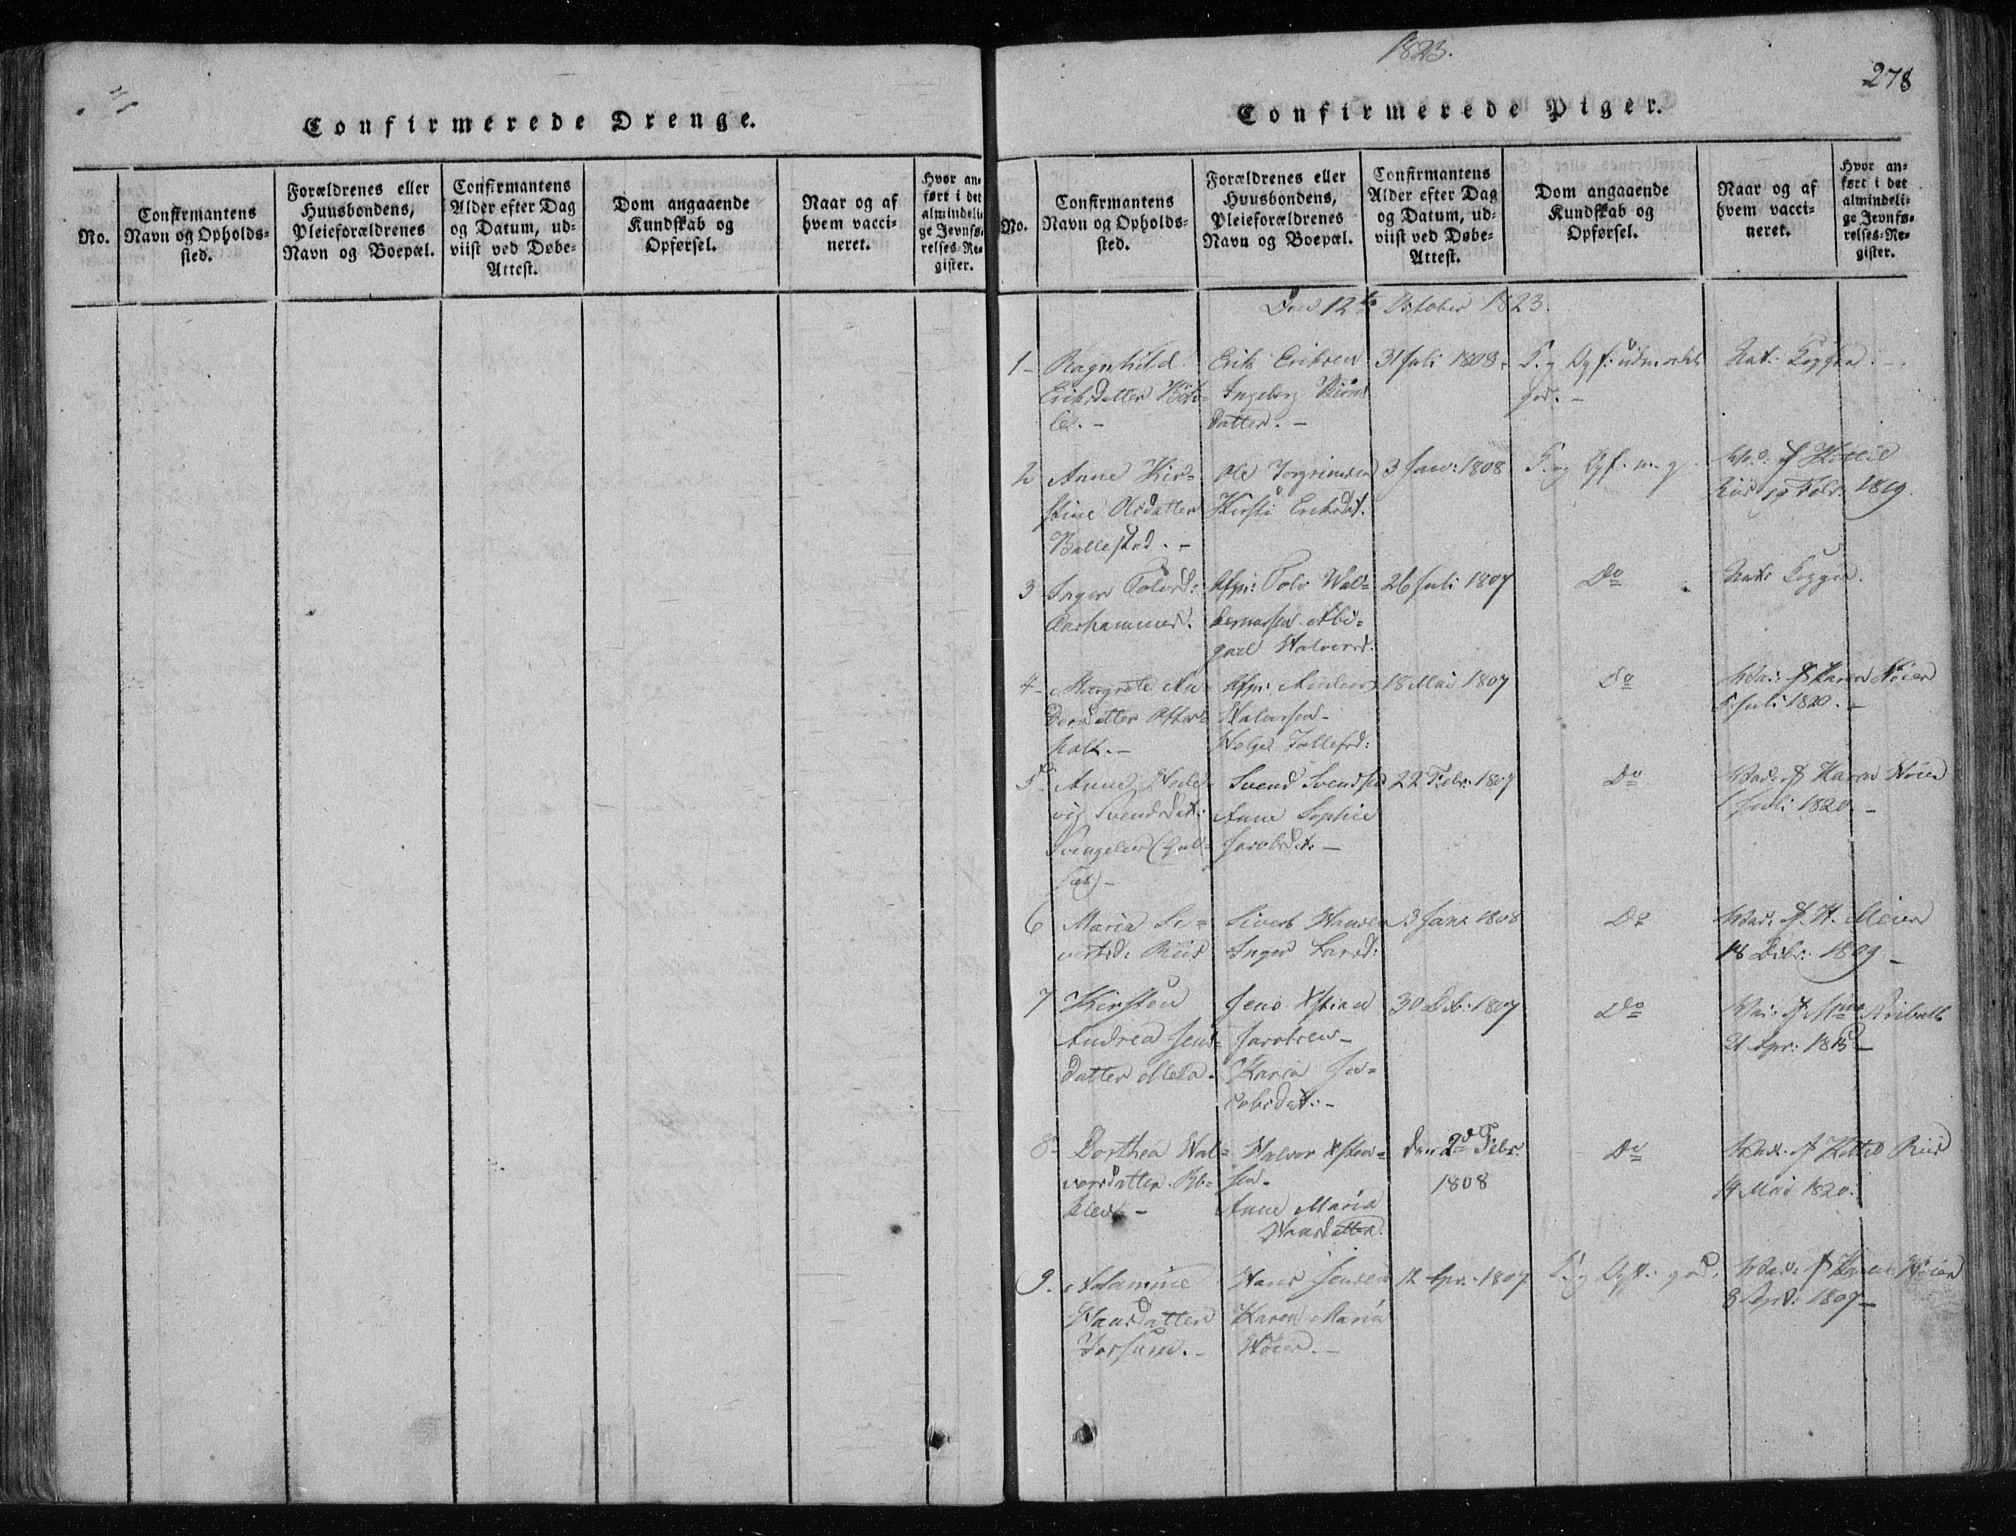 Confirmerede Drenge.
No.
Confirmantens
Navn og Opholds-
sted.
Forældrenes eller
Huusbondens,
Pleieforældrenes
Navn og Boepæl.
Confirmantens
Alder efter Dag
og Datum, ud-
viist ved Døbe-
Attest.
Dom angaaende
Kundskab og
Opførsel.
Naar og af
hvem vacci-
neret.
Hvor an-
ført i det
almindeli-
ge Jevnfø-
relses-Re-
gister.
1823.
278
Confirmerede Piger.
No.
Confirmantens
Navn og Opholds-
sted.
Forældrenes eller
Huusbondens,
Pleieforældrenes
Navn og Boepæl.
Confirmantens
Alder efter Dag
og Datum, ud-
viist ved Døbe-
Attest.
Dom angaaende
Kundskab og
Opførsel.
Naar og af
hvem vacci-
neret.
Hvor an-
ført i det
almindeli-
ge Jevnfø-
relses-Re-
gister.
Den 12te October 1823.
1-
Ragnhild
Eriksdatter
Erik Eriksen
Ingeborg
datter. -
31 Juli 1808.
K. og
god. -
Nat: Kopper. -
2
Anne Kir-
stine Olsdatter
Ballestad. -
Ole Torgrimsen
Kirsti Eriksdt.
3 Jan: 1808
K. og Opf. m. g.
Vac: af Kittil
Riis 19 Febr: 1819.
3
Inger Tolvsd:
Aarhammer.
Afg: Tolv Hal-
Abi-
gael Halvorsd:
26 Juli 1807
Do
Nat: Kopper.
4-
Margrete An-
dersdatter
holt. -
Afg: Anders
Halvorsen -
Helge Tollefsd:
18 Mai 1807
Do
Vac: af Karen Høier
5 Juli 1820. -
5-
Anne Hede-
vig Svendsdt:
Svend Svendsen
Anne Sophie
Jacobsdt: -
22 Febr: 1807
Do
Vac: af Karen Høier
1 Juli 1820 -
6
Maria Si-
vertsd: Riis
Sivert Hansen
Inger Larsd:
3 Jan: 1808
Do
Vac: af H. Meier
18 Decbr: 1809 -
7
Kirsten
Andrea Jens-
datter Mela.
Jens Xstian
Jacobsen -
Karen Ja-
cobsdat: -
30 Dcb: 1807
Do
Vac: af
21 Apr: -
8-
Dorthea Hal-
vorsdatter
Halvor Xsten-
sen -
Anne Maria
Hansdatter.
den 2d Febr:
1808
Do
Vac: af Kittil Riis
19 Mai 1820.
9.
Adamine
Hansdatter
Hans Jensen
Karen Maria
Høier. -
12 Apr: 1807
K. og Opf: god.
Vac: af Karen Høier
8 Apr: 1807 -